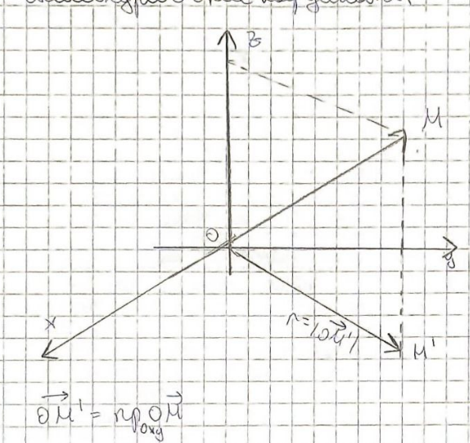 z
M
O
y
x
r=|OM⃗'|
M'
OM⃗' = пр_oxy OM⃗